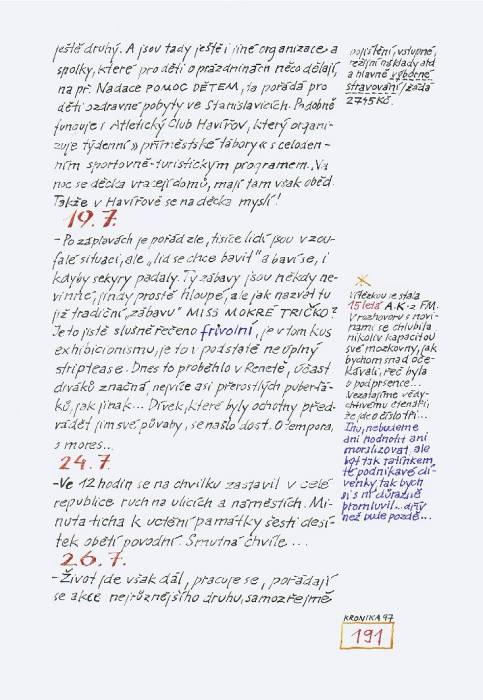 ještě druhý. A jsou tady ještě i jiné organizace a
spolky, které pro děti o prázdninách něco dělají,
na př. Nadace POMOC DĚTEM, ta pořádá pro
děti ozdravné pobyty ve Stanislavicích. Podobně
funguje i Atletický Club Havířov, který organi-
zuje týdenní »příměstské tábory« s celoden-
ním sportovně-turistickým programem. Na
noc se děcka vracejí domů, mají tam však oběd.
Takže v Havířově se na děcka myslí!
19.7.
- Po záplavách je pořád zle, tisíce lidí jsou v zou-
falé situaci, ale „lid se chce bavit" a baví se, i
kdyby sekyry padaly. Ty zábavy jsou někdy ne-
vinné, jindy prostě hloupé, ale jak nazvat tu
již tradiční „zábavu" MISS MOKRÉ TRIČKO?
Je to jistě slušně řečeno frivolní, je v tom kus
exhibicionismu, je to v podstatě neúplný
striptease. Dnes to proběhlo v Renetě, účast
diváků značná, nejvíce asi přerostlých puberťá-
ků, jak jinak... Dívek, které byly ochotny před-
vádět jim své půvaby, se našlo dost. O tempora,
o mores...
24.7.
- Ve 12 hodin se na chvilku zastavil v celé
republice ruch na ulicích a náměstích. Mi-
nuta ticha k uctění památky šesti desí-
tek obětí povodní. Smutná chvíle...
26.7.
- Život jde však dál, pracuje se, pořádají
se akce nejrůznějšího druhu, samozřejmě
pojištění, vstupné,
režijní náklady atd
a hlavně výborné
stravování / žádá
2745 Kč.
Vítězkou se stala
15letá A.K. z FM.
V rozhovoru s novi-
nami se chlubila
nikoliv kapacitou
své mozkovny, jak
bychom snad oče-
kávali, řeč byla
o podprsence...
Nezatajíme vědy-
chtivému čtenáři,
že jde o číslo tři...
Inu, nebudeme
ani hodnotit ani
moralizovat, ale
být tak tatínkem
té podnikavé dí-
venky, tak bych
si s ní důrazně
promluvil... dřív
než bude pozdě...
KRONIKA 97
191